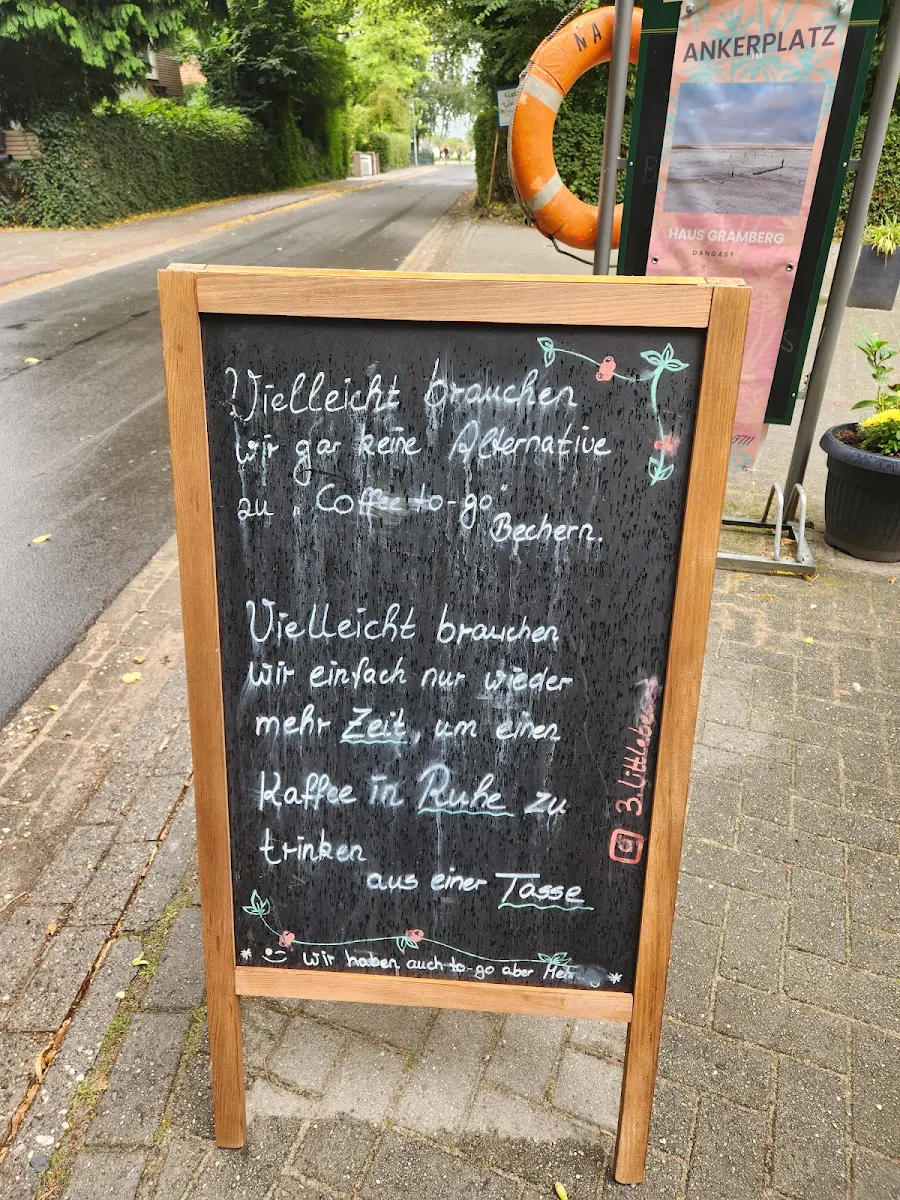 NA
ANKERPLATZ
HAUS GRAMBERG
DANGAST
Vielleicht brauchen
wir gar keine Alternative
zu „Coffee to-go"
Bechern.
Vielleicht brauchen
wir einfach nur wieder
mehr Zeit, um einen
Kaffee in Ruhe zu
trinken
aus einer Tasse
* wir haben auch to-go aber *